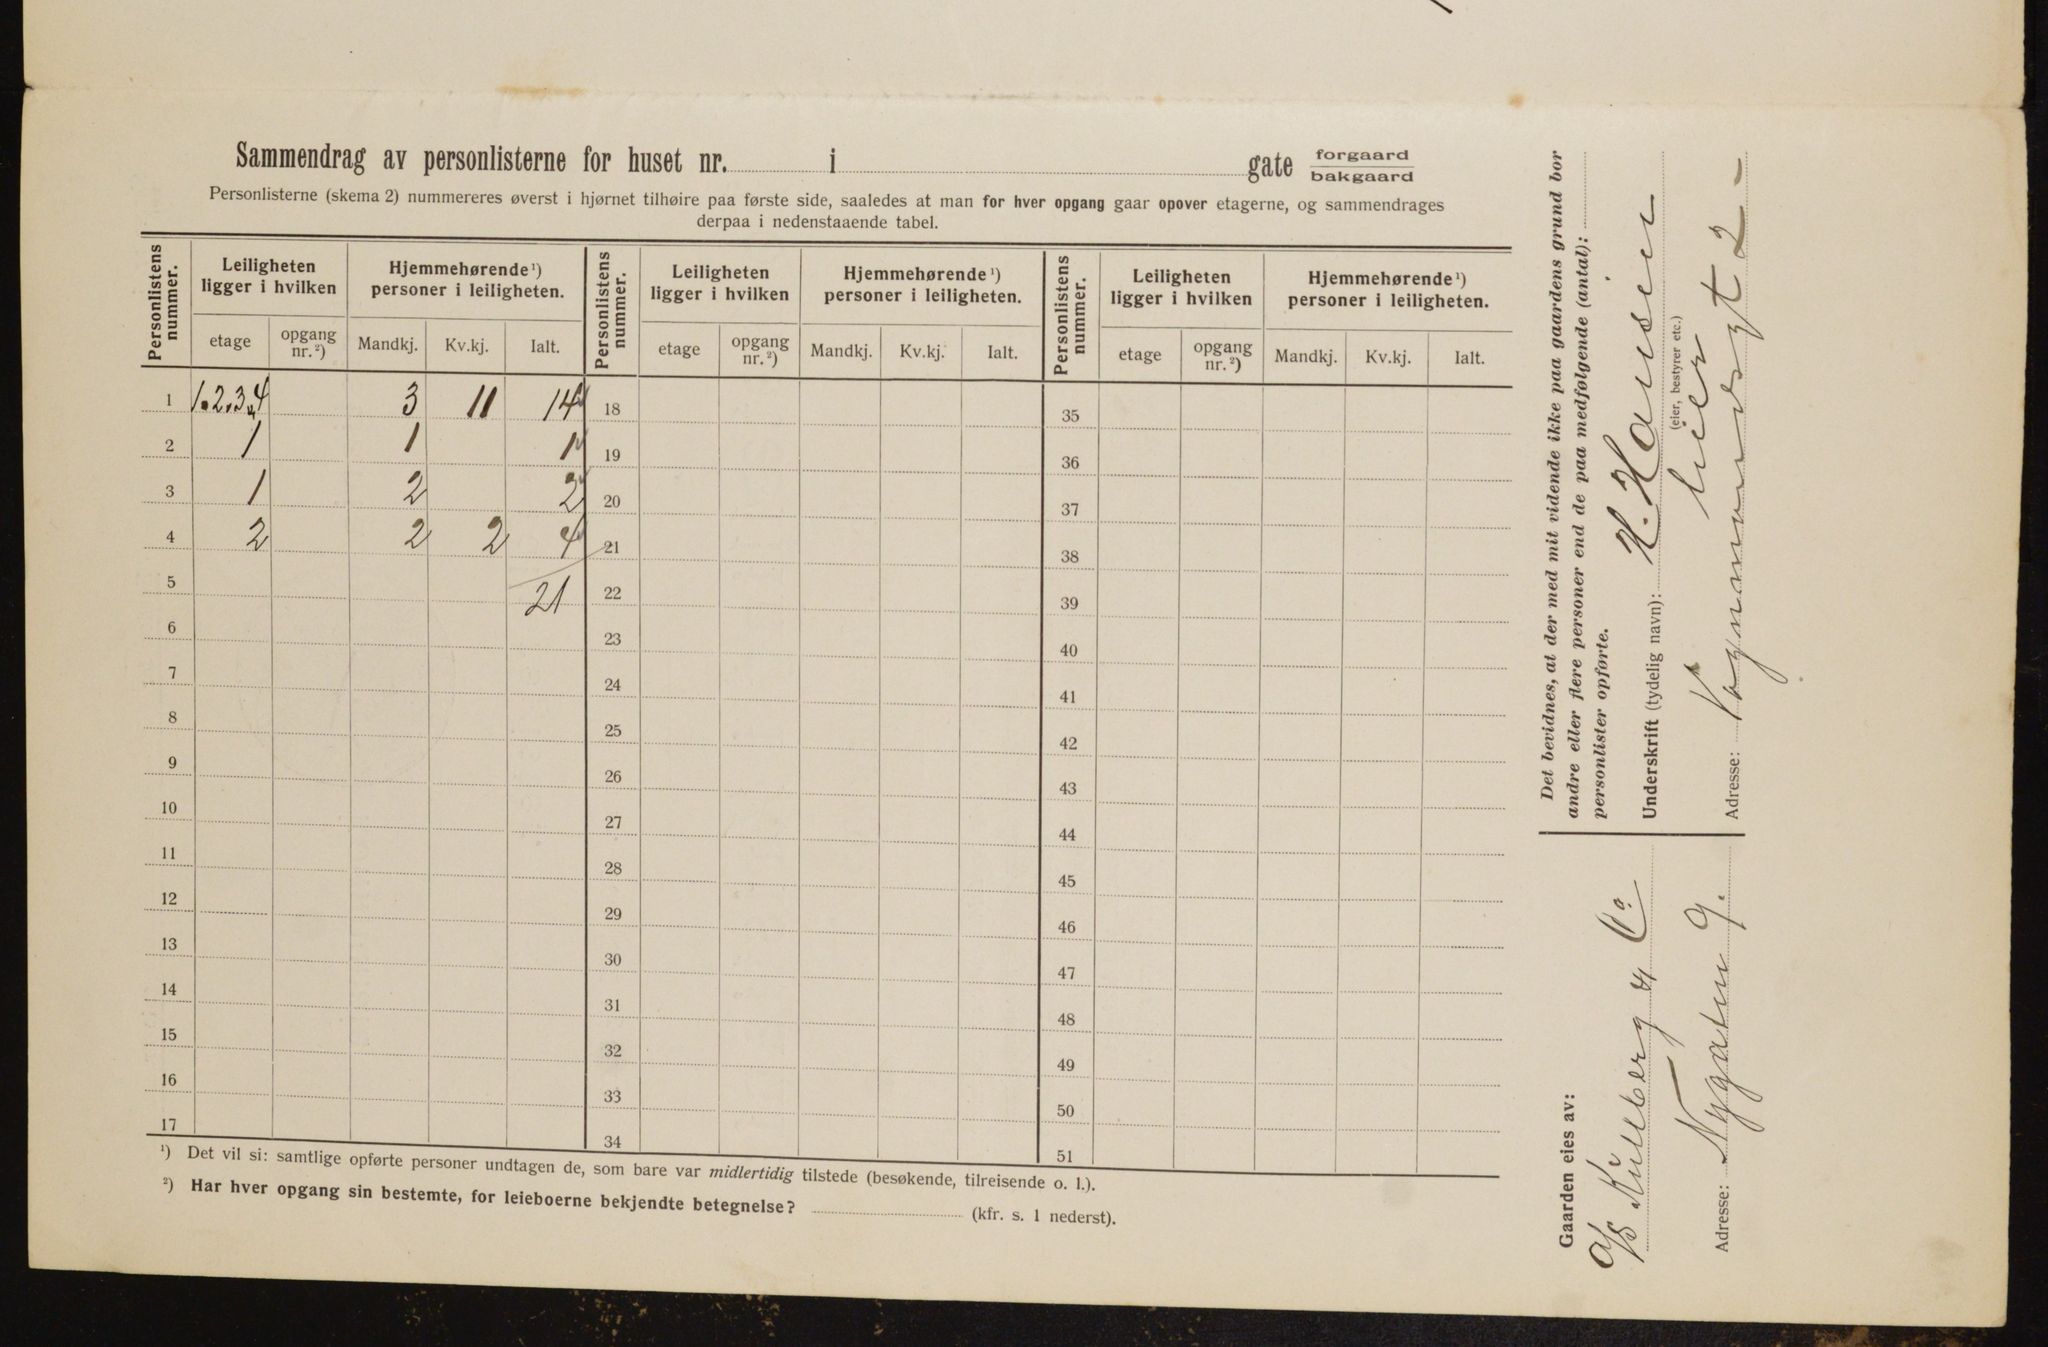 Sammendrag av personlisterne for huset nr. i gate forgaard bakgaard
Personlisterne (skema 2) nummereres øverst i hjørnet tilhøire paa første side, saaledes at man for hver opgang gaar opover etagerne, og sammendrages
derpaa i nedenstaaende tabel.
Personlistens nummer. Leiligheten ligger i hvilken Hjemmehørende ¹) personer i leiligheten. Personlistens nummer. Leiligheten ligger i hvilken Hjemmehørende ¹) personer i leiligheten. Personlistens nummer. Leiligheten ligger i hvilken Hjemmehørende ¹) personer i leiligheten.
etage opgang nr. ²) Mandkj. Kv.kj. Ialt. etage opgang nr. ²) Mandkj. Kv.kj. Ialt. etage opgang nr. ²) Mandkj. Kv.kj. Ialt.
1 1.2.3.4 3 11 14 18 35
2 1 1 1 19 36
3 1 2 2 20 37
4 2 2 2 4 21 38
5 21 22 39
6 23 40
7 24 41
8 25 42
9 26 43
10 27 44
11 28 45
12 29 46
13 30 47
14 31 48
15 32 49
16 33 50
17 34 51
¹) Det vil si: samtlige opførte personer undtagen de, som bare var midlertidig tilstede (besøkende, tilreisende o. l.).
²) Har hver opgang sin bestemte, for leieboerne bekjendte betegnelse? (kfr. s. 1 nederst).
Det bevidnes, at der med mit vidende ikke paa gaardens grund bor
andre eller flere personer end de paa medfølgende (antal):
personlister opførte.
Underskrift (tydelig navn): H. Hansen
(eier, bestyrer etc.)
Adresse: 2
Gaarden eies av:
A/S Kiellberg & Co
Adresse: Nygaten 9.